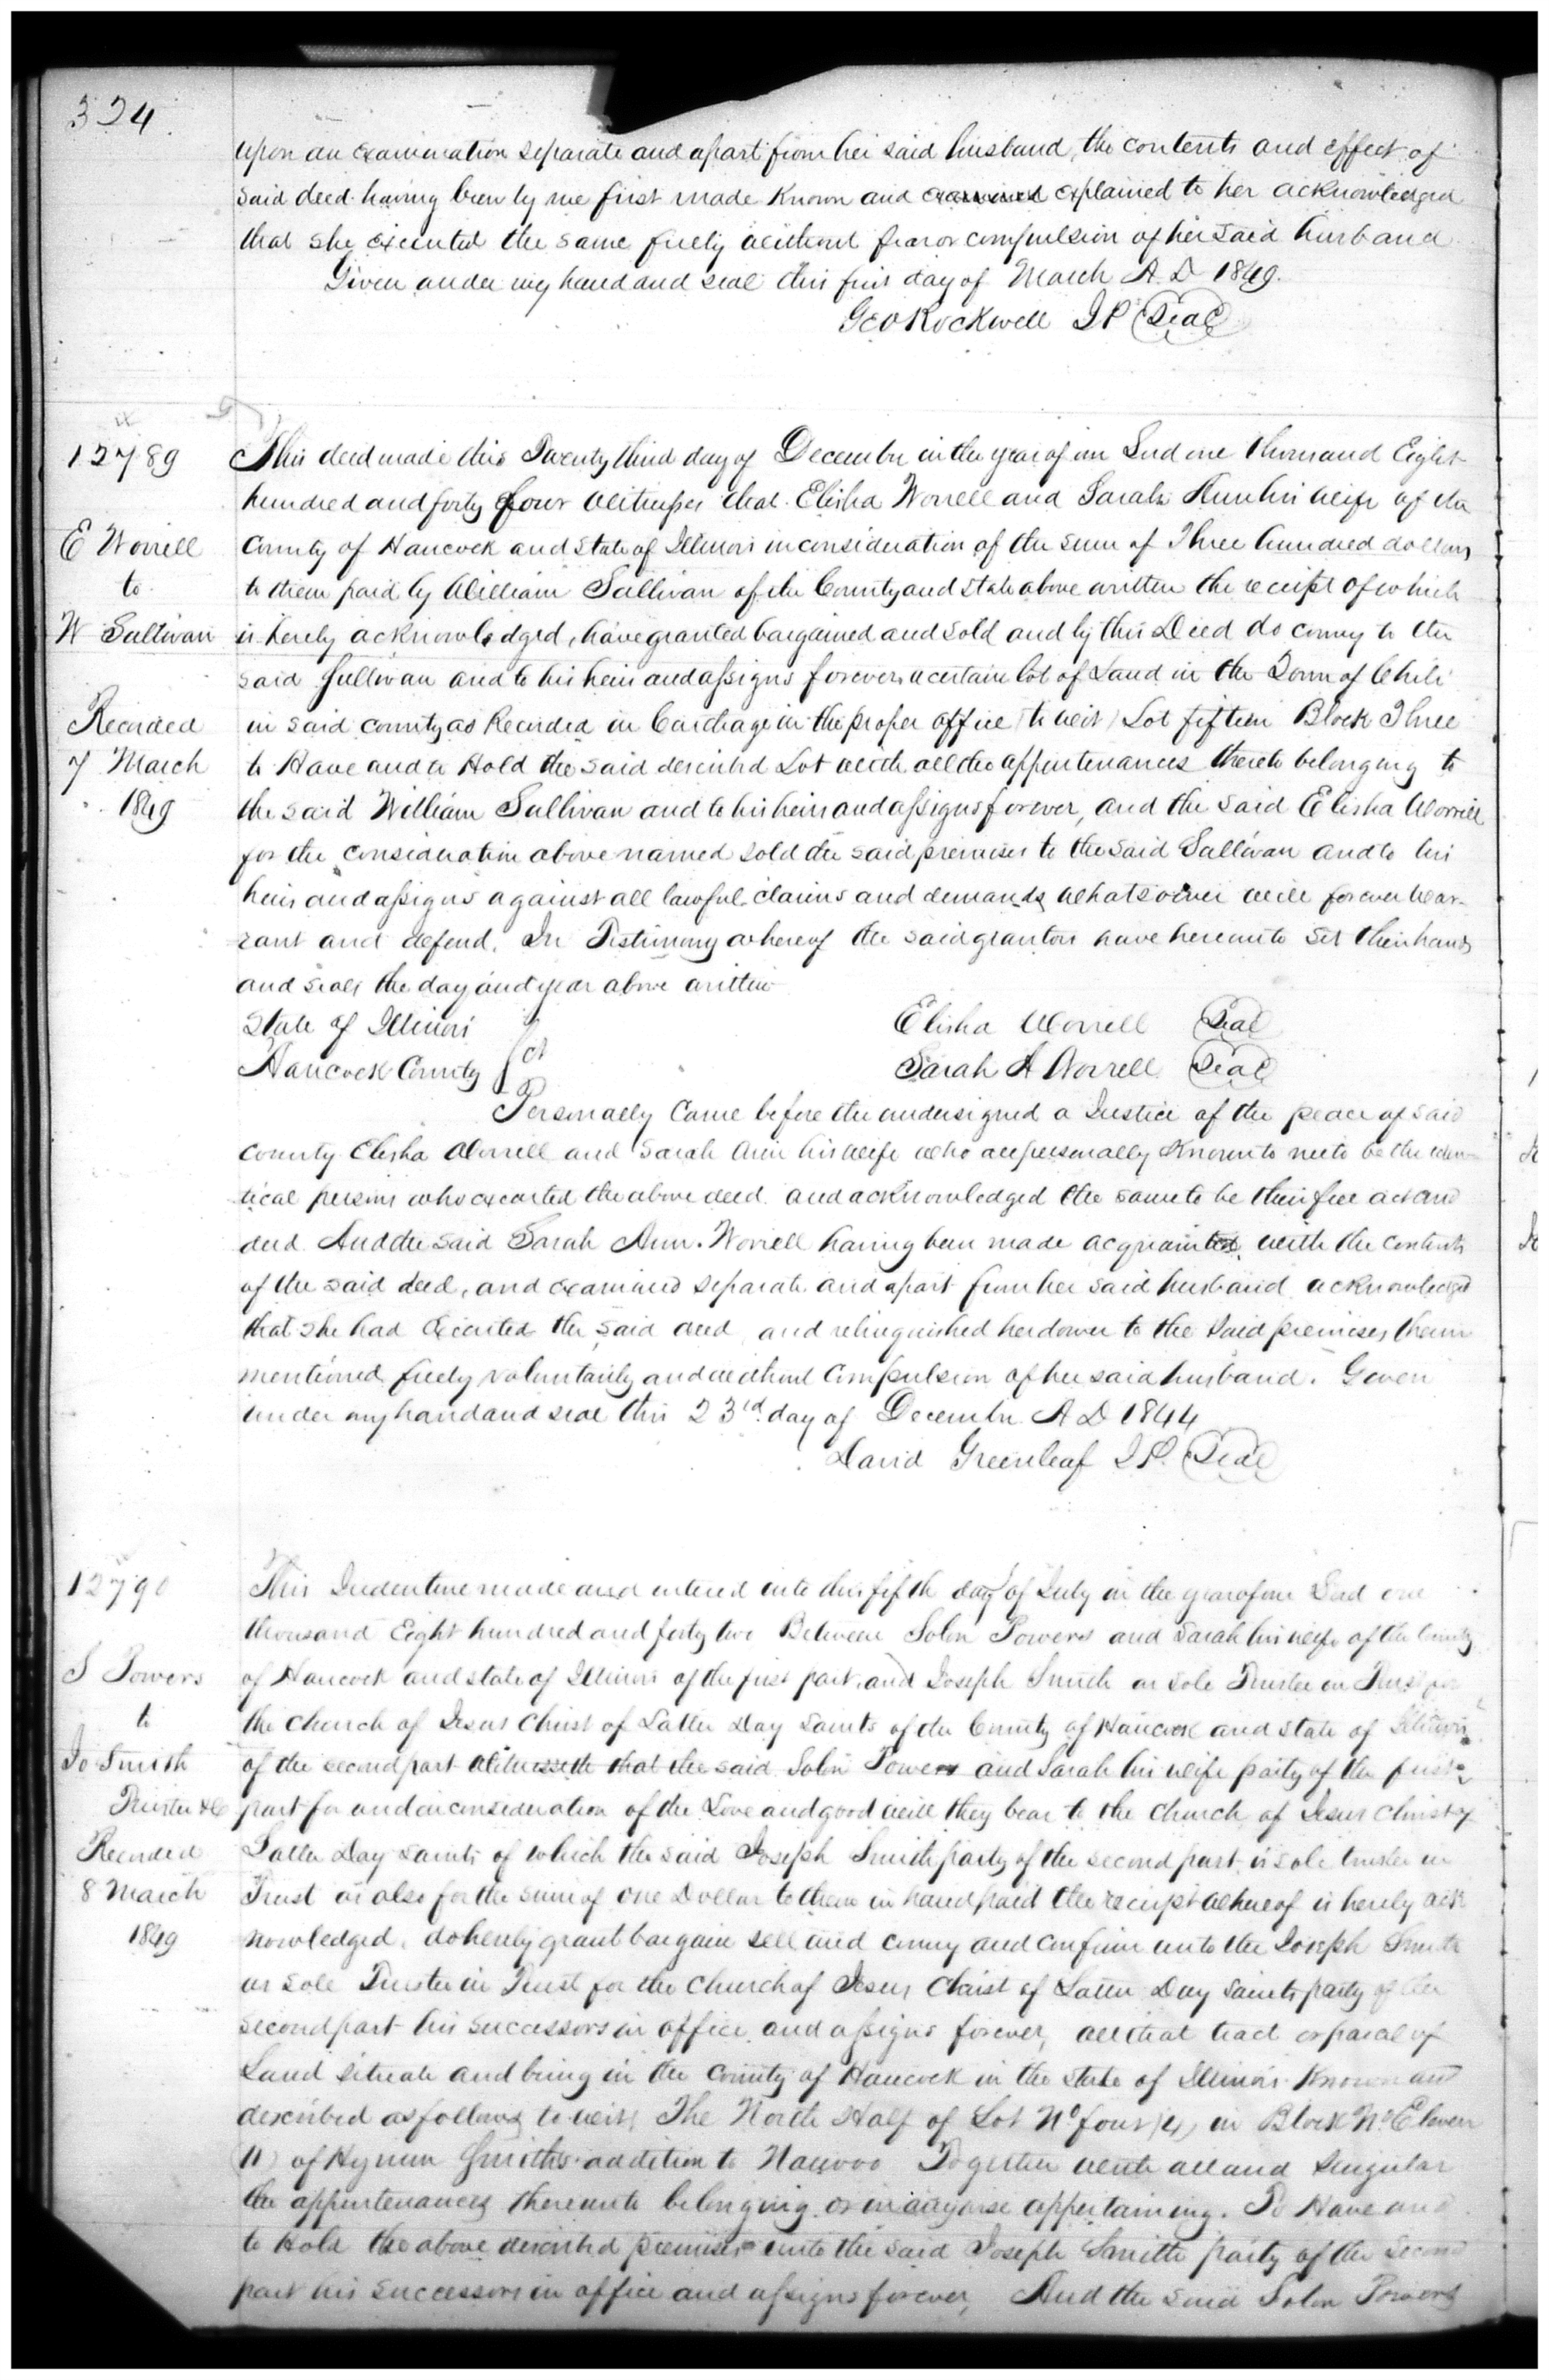 324
upon an examination separate and apart from her said husband, the contents and effect of
said deed having been by me first made known and examined explained to her acknowledged
that she executed the same freely without fear or compulsion of her said husband
Given under my hand and seal this first day of March A. D 1849.
Geo Rockwell J P Seal
12789
E Worrell
to
W Sullivan
Recorded
7 March
1849
This deed made this Twenty third day of December in the year of our Lord one thousand Eight
hundred and forty four Witnesses that Elisha Worrell and Sarah Ann his wife of the
County of Hancock and State of Illinois in consideration of the sum of Three hundred dollars
to them paid by William Sullivan of the County and State above written the receipt of which
is hereby acknowledged, have granted bargained and sold and by this Deed do convey to the
said Sullivan and to his heirs and assigns forever a certain lot of Land in the Town of Chili
in said county as Recorded in Carthage in the proper office (to wit) Lot fifteen Block Three
to Have and to Hold the said described Lot with all the appurtenances thereto belonging to
the said William Sullivan and to his heirs and assigns forever, and the said Elisha Worrell
for the consideration above named sold the said premises to the said Sullivan and to his
heirs and assigns against all lawful claims and demands whatsoever will forever war-
rant and defend. In Testimony whereof the said grantors have hereunto set their hands
and seals the day and year above written
State of Illinois
Hancock County } ct
Elisha Worrell Seal
Sarah A Worrell Seal
Personally Came before the undersigned a Justice of the peace of said
County Elisha Worrell and Sarah Ann his wife who are personally Known to me to be the iden-
tical persons who executed the above deed and acknowledged the same to be their free act and
deed And the said Sarah Ann Worrell having been made acquainted with the contents
of the said deed, and examined separate and apart from her said husband acknowledged
that she had Executed the said deed and relinquished her dower to the said premises therein
mentioned freely voluntarily and without Compulsion of her said husband. Given
under my hand and seal this 23rd day of December A D 1844
David Greenleaf J P. Seal
12790
S Powers
to
Jo Smith
Trustee &c
Recorded
8 March
1849
This Indenture made and entered into this fifth day of July in the year of our Lord one
thousand Eight hundred and forty two Between Solon Powers and Sarah his wife of the County
of Hancock and state of Illinois of the first part, and Joseph Smith as sole Trustee in Trust for
the Church of Jesus Christ of Latter Day Saints of the County of Hancock and State of Illinois
of the second part Witnesseth that the said Solon Powers and Sarah his wife party of the first
part for and in consideration of the Love and good will they bear to the Church of Jesus Christ of
Latter Day Saints of which the said Joseph Smith party of the second part, is sole trustee in
Trust as also for the sum of one Dollar to them in hand paid the receipt whereof is hereby ack
nowledged, do hereby grant bargain sell and convey and confirm unto the Joseph Smith
as sole Trustee in Trust for the Church of Jesus Christ of Latter Day Saints party of the
second part his successors in office and assigns forever, all that tract or parcel of
Land situate and being in the County of Hancock in the state of Illinois Known and
described as follows to wit, The North Half of Lot No four (4) in Block No Eleven
(11) of Hyrum Smith's addition to Nauvoo Together with all and Singular
the appurtenances thereunto belonging or in anywise appertaining. To Have and
to Hold the above described premises unto the said Joseph Smith party of the second
part his successors in office and assigns forever, And the said Solon Powers